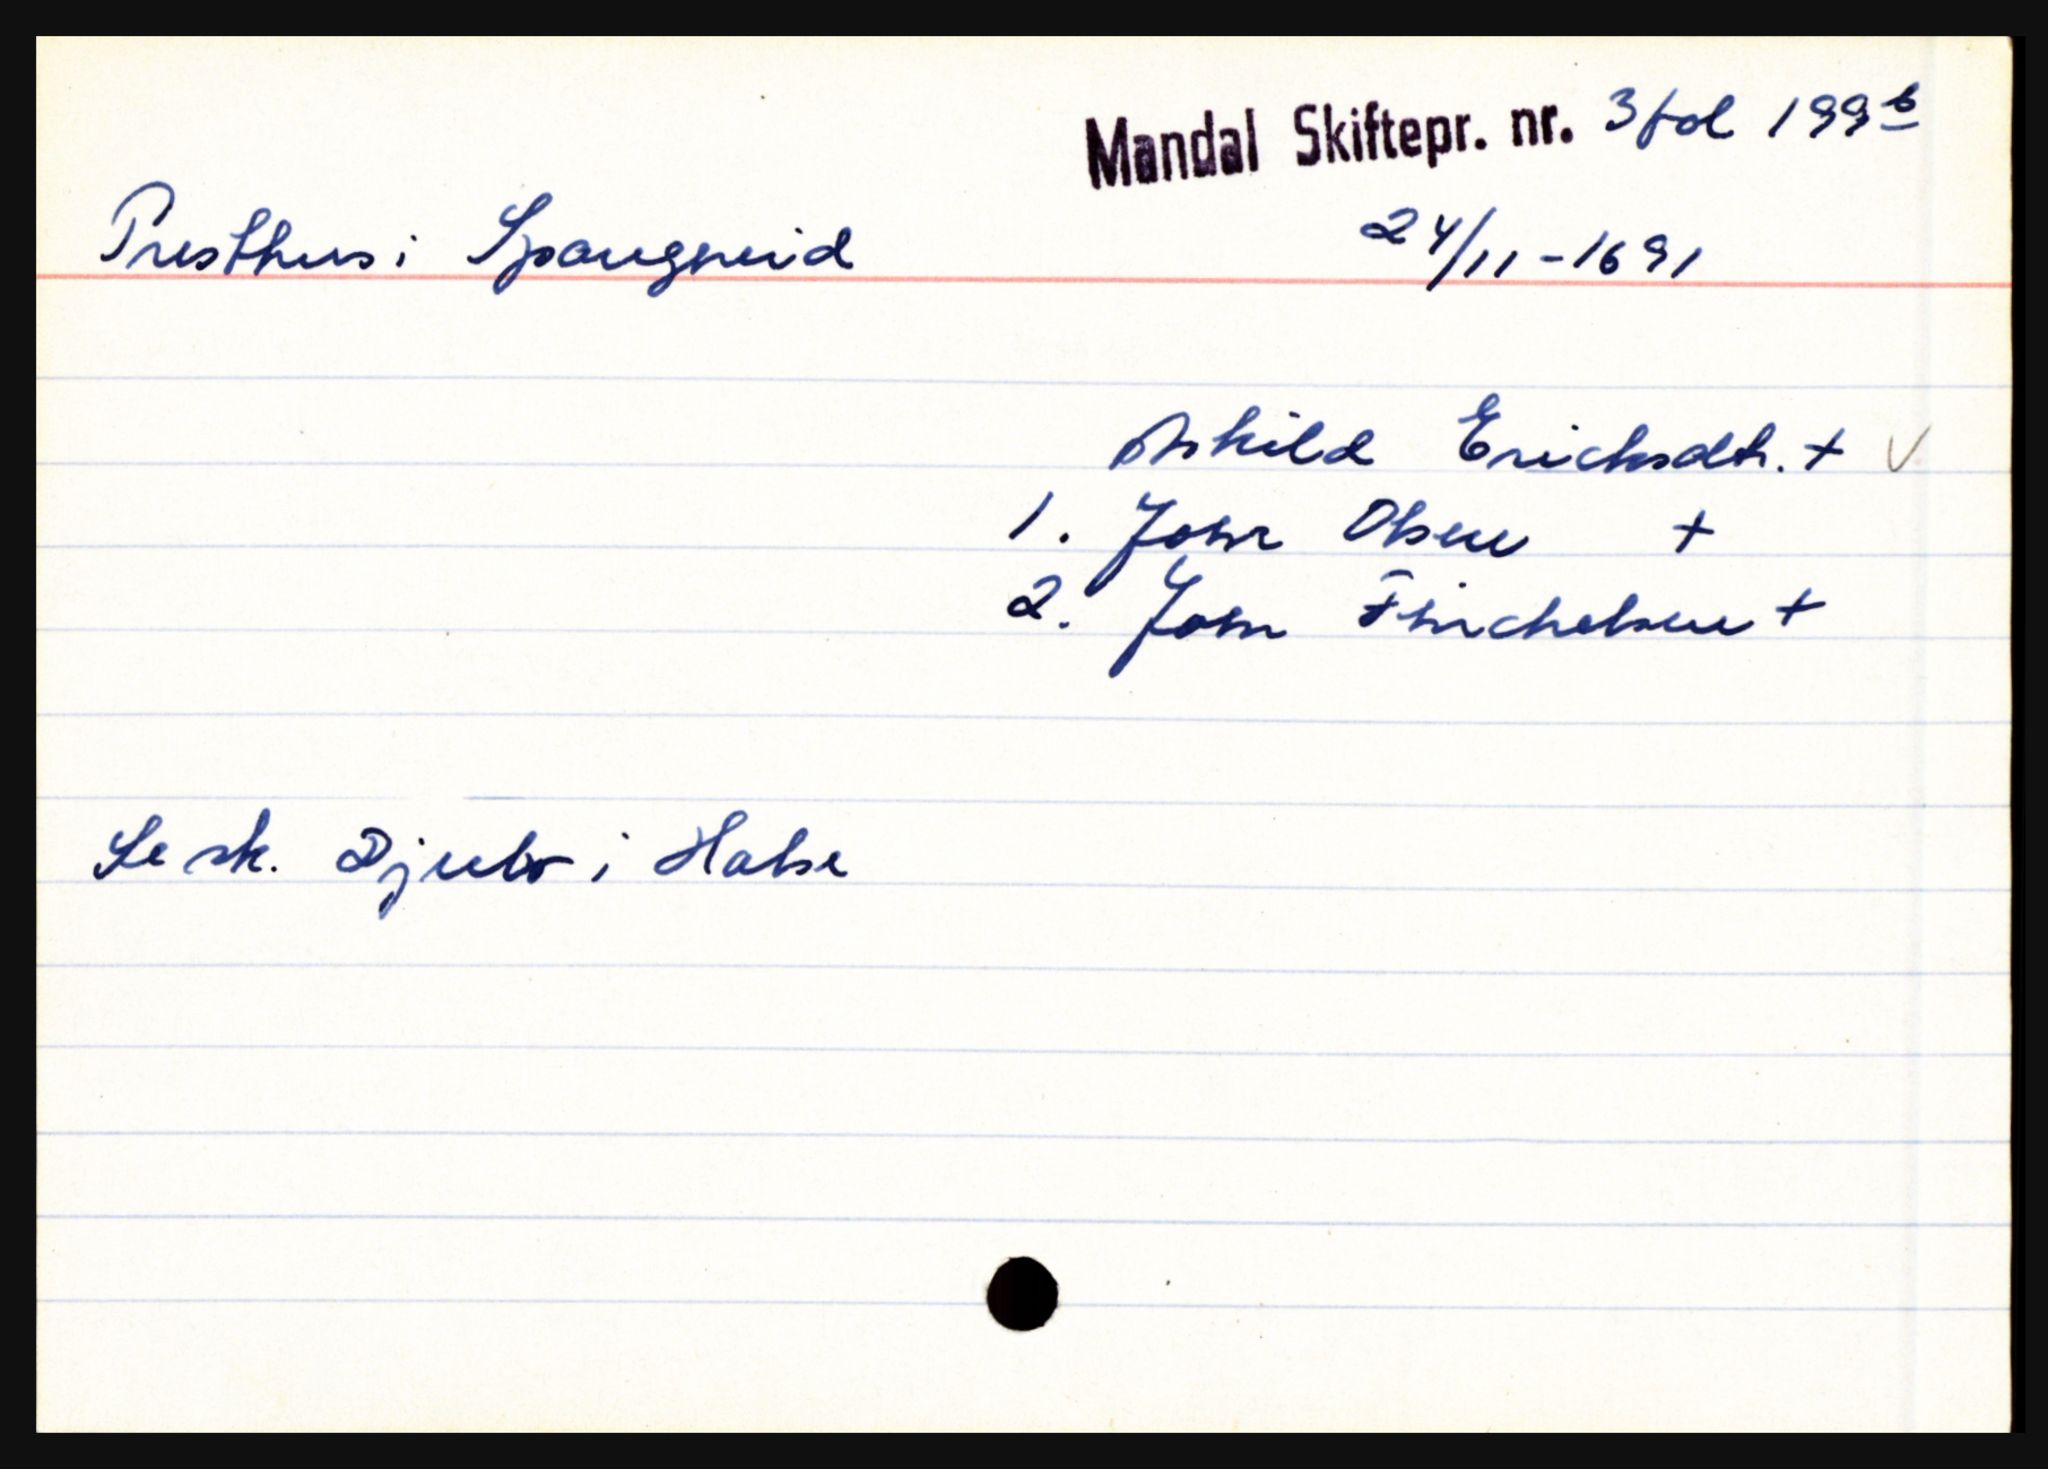 Mandal Skiftepr. nr. 3 fol 199 b
Presthus i Spangereid 24/11-1691
Askild Ericksdtr. + ✓
1. John Olsen +
2. John +
Se sk. Djubo i Halse